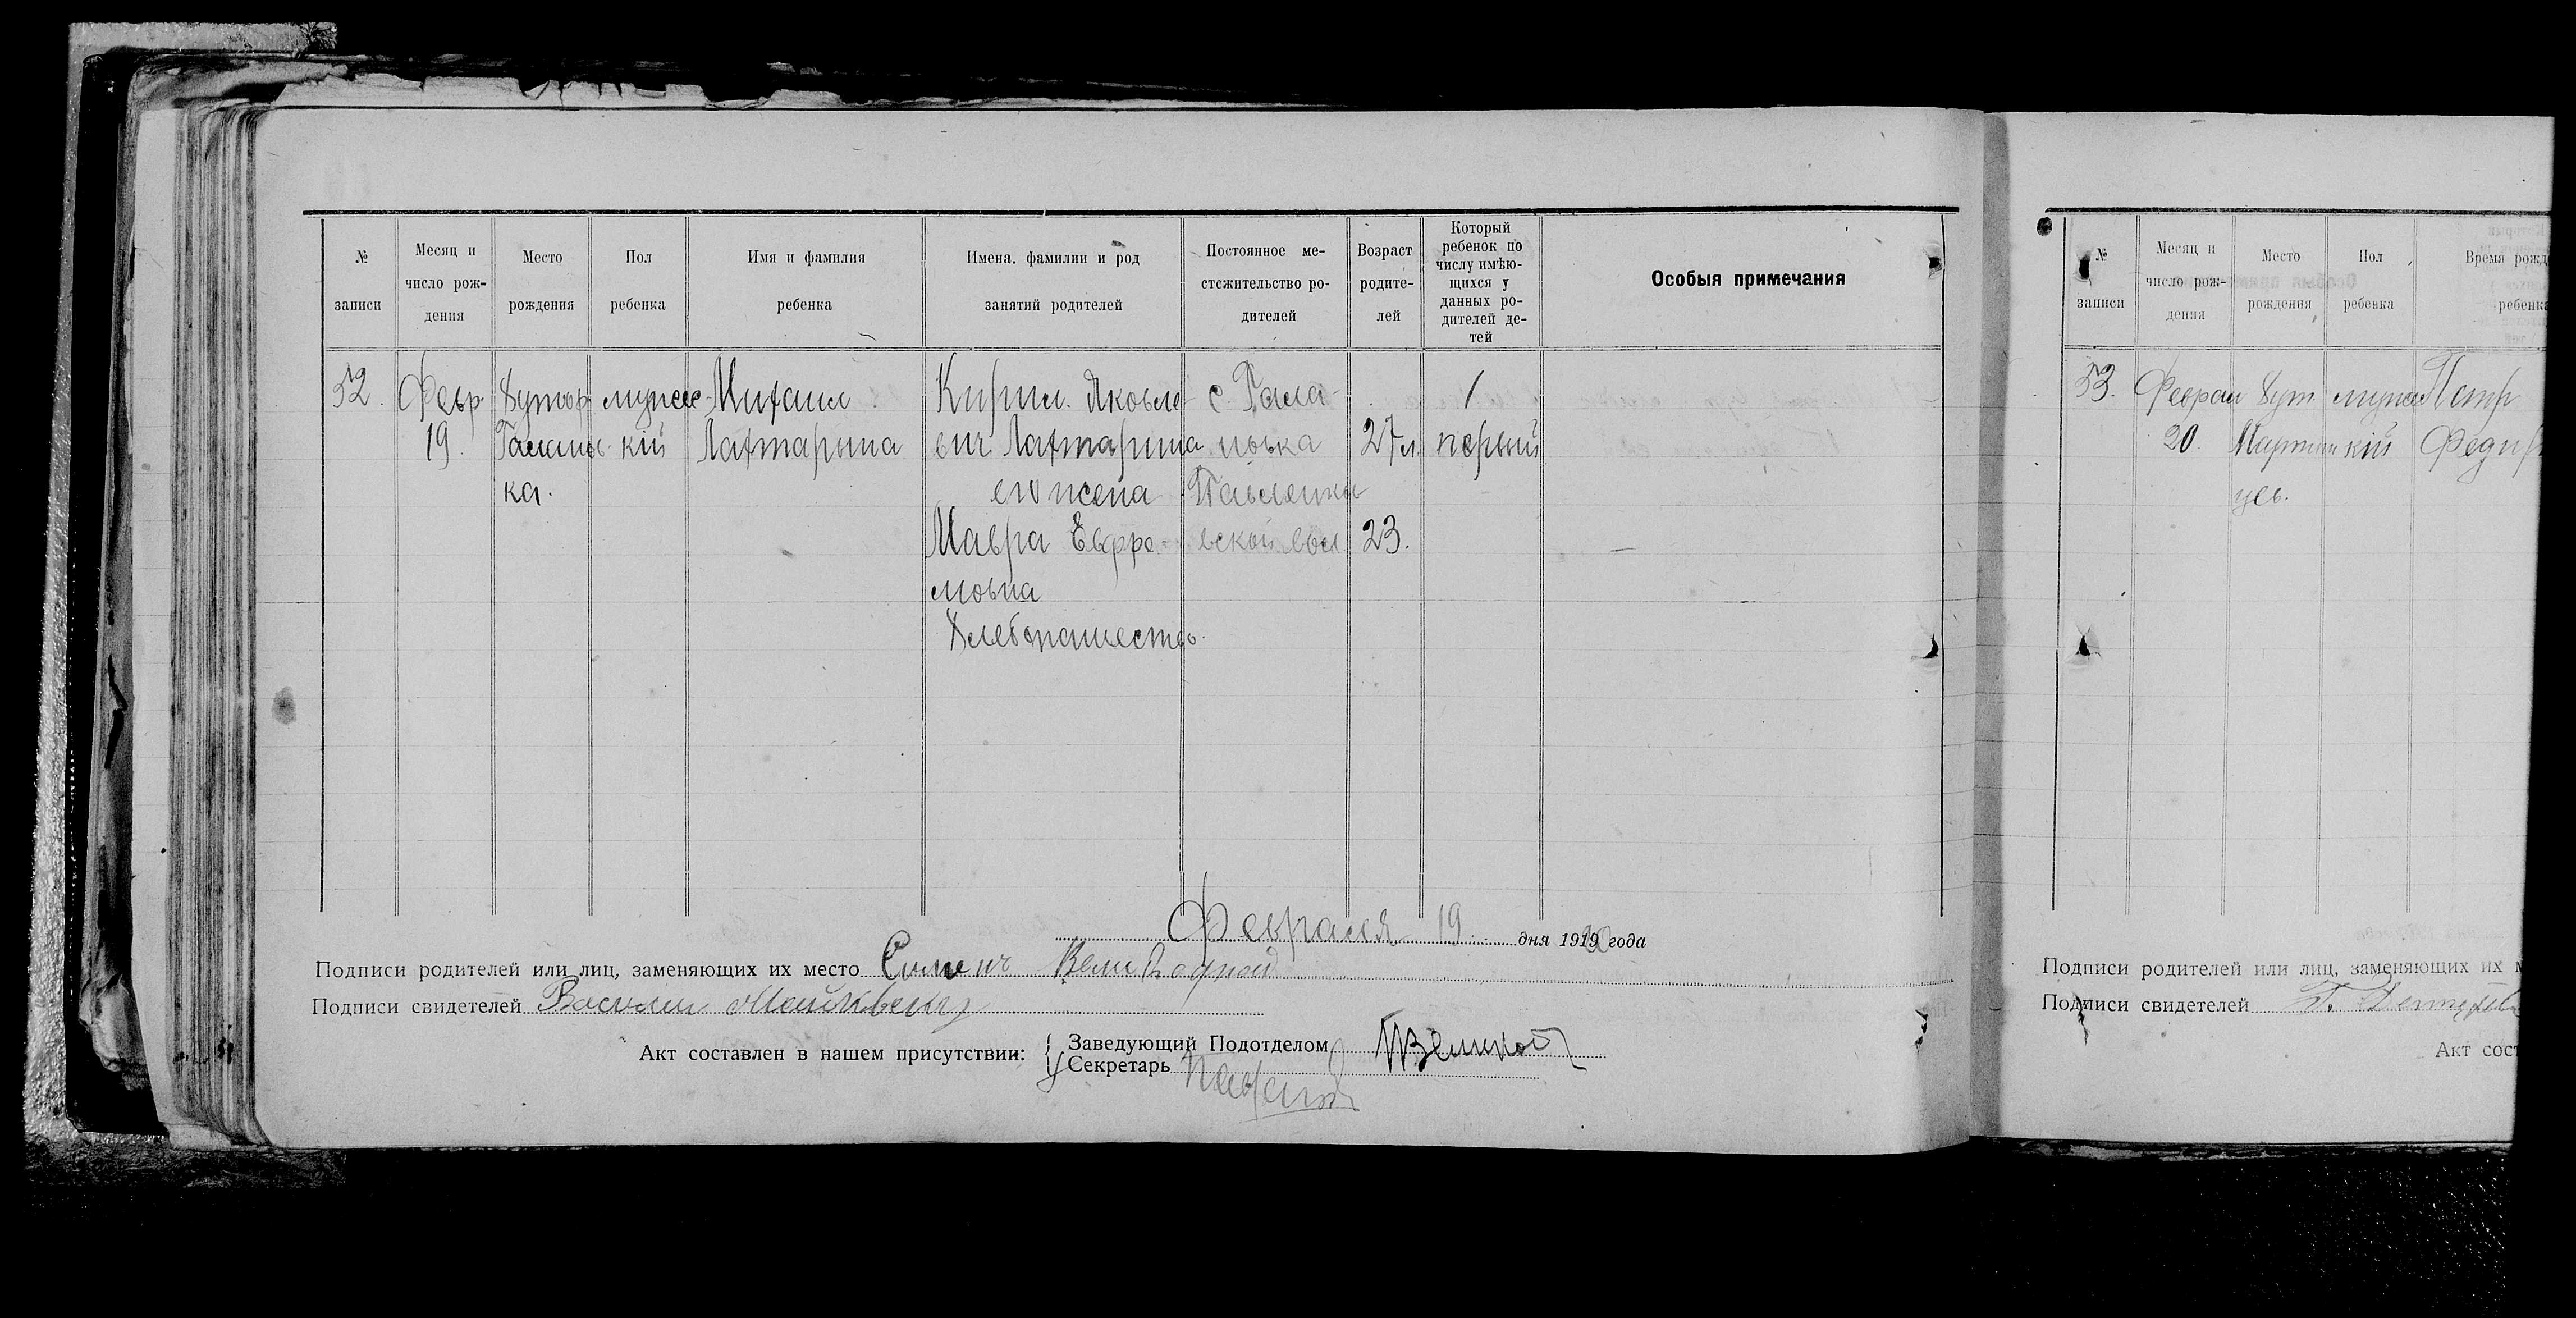 № записи
Месяц и число рождения
Место рождения
Пол ребенка
Имя и фамилия ребенка
Имена. фамилии и род занятий родителей
Постоянное местсжительство родителей
Возраст родителей
Который ребенок по числу имѣющихся у данных родителей детей
Особыя примечания
52. Февр. Хутор мужес- Михаил Кирил. Яковле- с. Гала- 1
19. кій Лахтарына вич Лахтарина 27 л. первый
ка. его жена
Мавра Евфре- ской вол. 23.
мовна
Хлебопашество.
Февраля 19 дня 1920 года
Подписи родителей или лиц, заменяющих их место
Подписи свидетелей Василий
Акт составлен в нашем присутствии:
Заведующий Подотделом
Секретарь
№ записи
Месяц и число рождения
Место рождения
Пол ребенка
Время рожд
ребенка
53. Феврал Хут. мужес Петр
20. кій
цев.
Подписи родителей или лиц, заменяющих их м
Подписи свидетелей
Акт сост